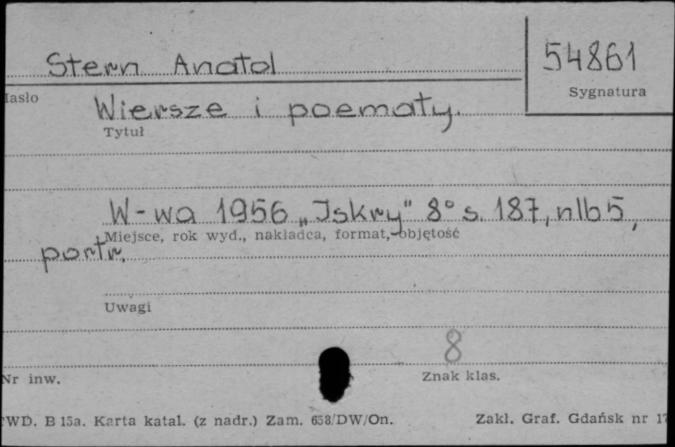 Stern Anatol
54861
Hasło
Sygnatura
Wiersze i poematy.
Tytuł
W-wa 1956 „Iskry" 8° s. 187, nlb 5,
Miejsce, rok wyd., nakładca, format, objętość
portr.
Uwagi
8
Nr inw.
Znak klas.
PWD. B 15a. Karta katal. (z nadr.) Zam. 658/DW/On.
Zakł. Graf. Gdańsk nr 17